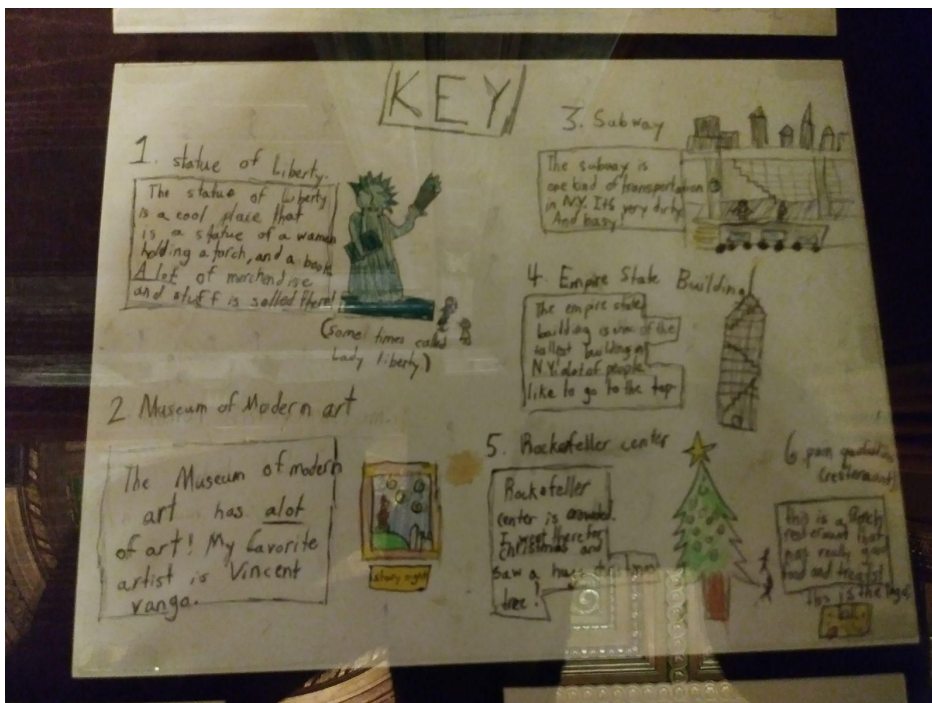 KEY
1. statue of Liberty.
The statue of liberty
is a cool place that
is a statue of a women
holding a torch, and a book
A lot of merchandise
and stuff is selled there!
(some times called
Lady liberty)
2 Museum of Modern art
The Museum of modern
art has alot
of art! My favorite
artist is Vincent
vango.
starry night
3. Subway
The subway is
one kind of transportation
in N.Y. Its very dirty
And busy
4. Empire State Building
The empire state
building is one of the
tallest building in
N.Y. alot of people
like to go to the top
5. Rockefeller center
Rockefeller
center is crowded.
I went there for
Christmas and
saw a huge
tree!
6
(resteraunt)
this is a
resteraunt that
has really good
food and treats!
This is the logo